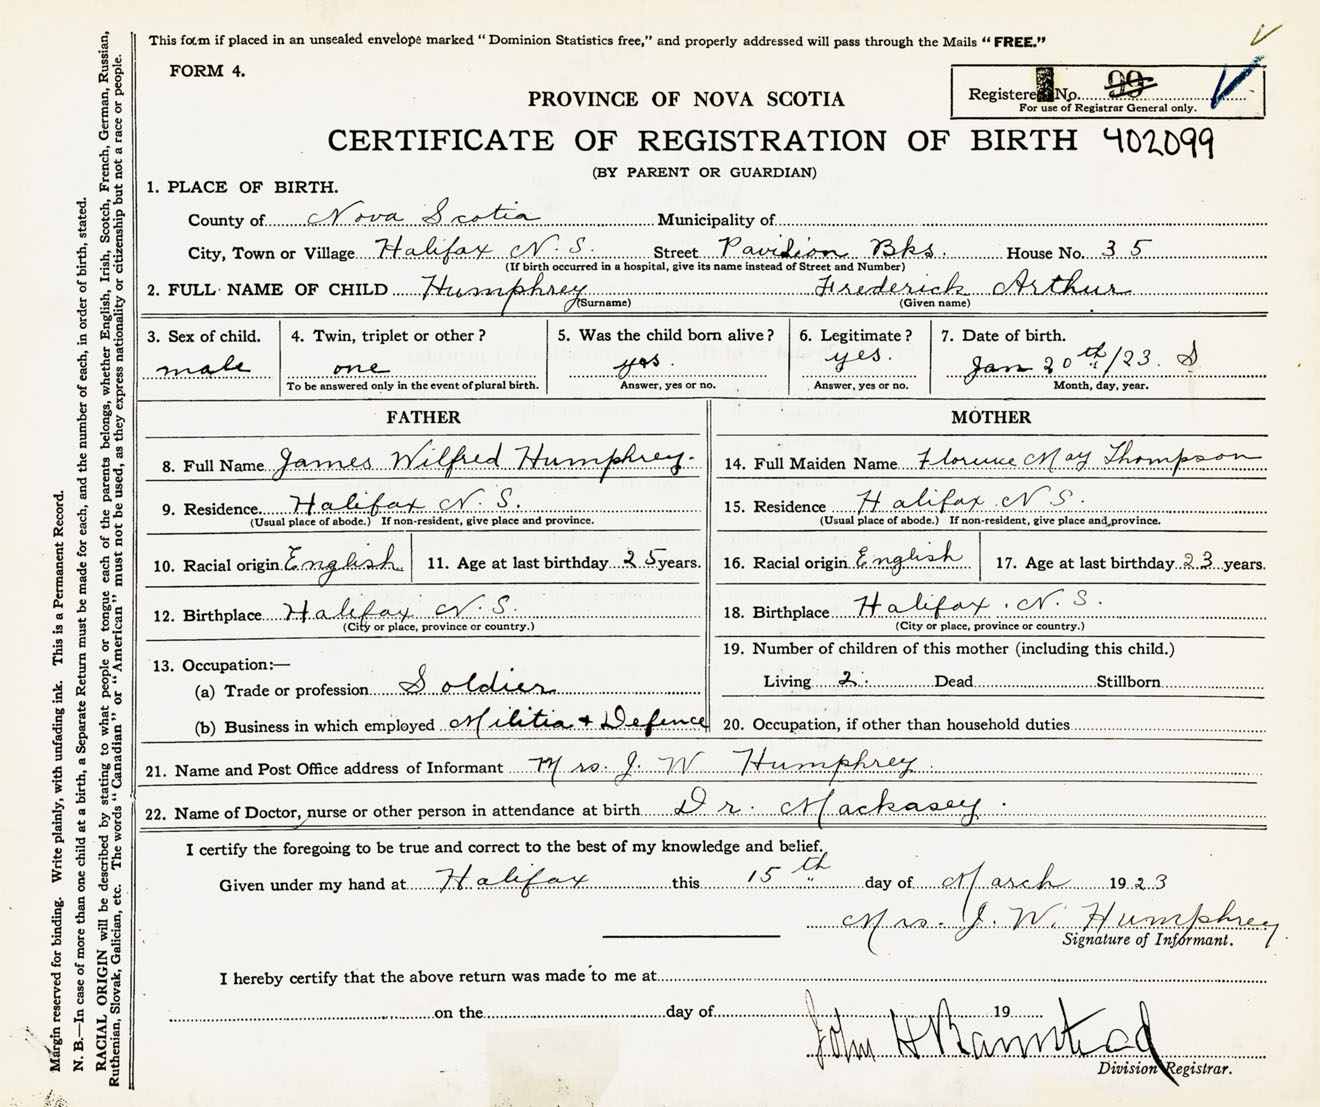 This form if placed in an unsealed envelope marked "Dominion Statistics free," and properly addressed will pass through the Mails "FREE."
FORM 4.
Registered No. 99
For use of Registrar General only.
PROVINCE OF NOVA SCOTIA
CERTIFICATE OF REGISTRATION OF BIRTH 402099
(BY PARENT OR GUARDIAN)
1. PLACE OF BIRTH.
County of Nova Scotia Municipality of
City, Town or Village Halifax N. S. Street Pavilion Bks. House No. 35
(If birth occurred in a hospital, give its name instead of Street and Number)
2. FULL NAME OF CHILD Humphrey Frederick Arthur
(Surname) (Given name)
3. Sex of child. 4. Twin, triplet or other? 5. Was the child born alive? 6. Legitimate? 7. Date of birth.
male one yes. yes. Jan 20th/23. S
To be answered only in the event of plural birth. Answer, yes or no. Answer, yes or no. Month, day, year.
FATHER MOTHER
8. Full Name James Wilfred Humphrey. 14. Full Maiden Name Florence May Thompson
9. Residence. Halifax N. S. 15. Residence Halifax N S.
(Usual place of abode.) If non-resident, give place and province. (Usual place of abode.) If non-resident, give place and province.
10. Racial origin English 11. Age at last birthday 25 years. 16. Racial origin English 17. Age at last birthday 23 years.
12. Birthplace Halifax N. S. 18. Birthplace Halifax. N. S.
(City or place, province or country.) (City or place, province or country.)
19. Number of children of this mother (including this child.)
13. Occupation:—
Living 2. Dead Stillborn
(a) Trade or profession Soldier
(b) Business in which employed Militia + Defence 20. Occupation, if other than household duties
21. Name and Post Office address of Informant Mrs. J. W Humphrey.
22. Name of Doctor, nurse or other person in attendance at birth Dr. Mackasey.
I certify the foregoing to be true and correct to the best of my knowledge and belief.
Given under my hand at Halifax this 15th day of March 1923
Mrs. J. W. Humphrey
Signature of Informant.
I hereby certify that the above return was made to me at
on the day of 19
John H Barnstead
Division Registrar.
Margin reserved for binding. Write plainly, with unfading ink. This is a Permanent Record.
N. B.—In case of more than one child at a birth, a Separate Return must be made for each, and the number of each, in order of birth, stated.
RACIAL ORIGIN will be described by stating to what people or tongue each of the parents belongs, whether English, Irish, Scotch, French, German, Russian,
Ruthenian, Slovak, Galician, etc. The words "Canadian" or "American" must not be used, as they express nationality or citizenship but not a race or people.